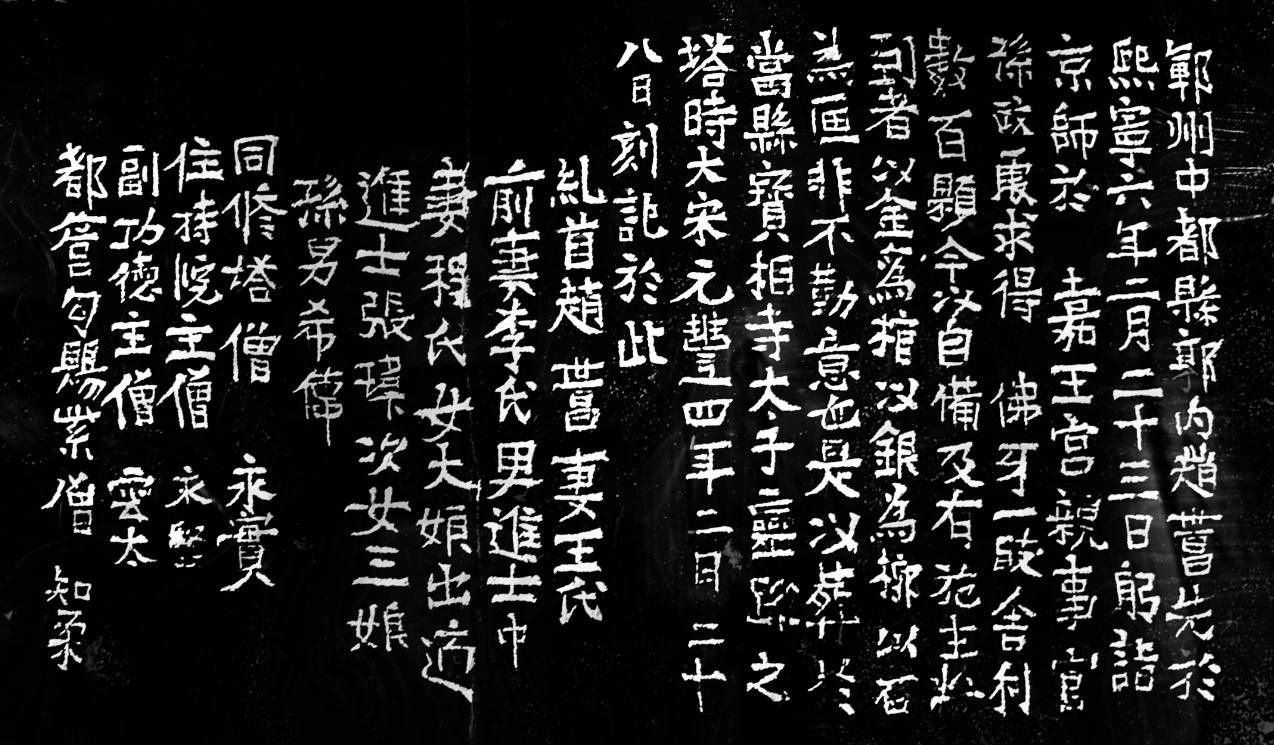 鄆州中都縣郭内趙世昌先於
熙寧六年二月二十三日躬詣
京師於 嘉王宫親事官
孫政處求得 佛牙一殘舍利
數百顆今以自備及右施主収
到者以金為棺以銀為槨以石
為匣非不勤意也是以葬於
當縣寶相寺太子靈蹤之
塔時大宋元豐四年二月二十
八日刻記於此
糺首趙 世昌妻王氏
前妻李氏男進士中
妻程氏女大娘出適
進士張瑋次女三娘
孫男希偉
同修塔僧 永實
住持院主僧 永堅
副功德主僧 雲太
都管勾賜紫僧 知柔